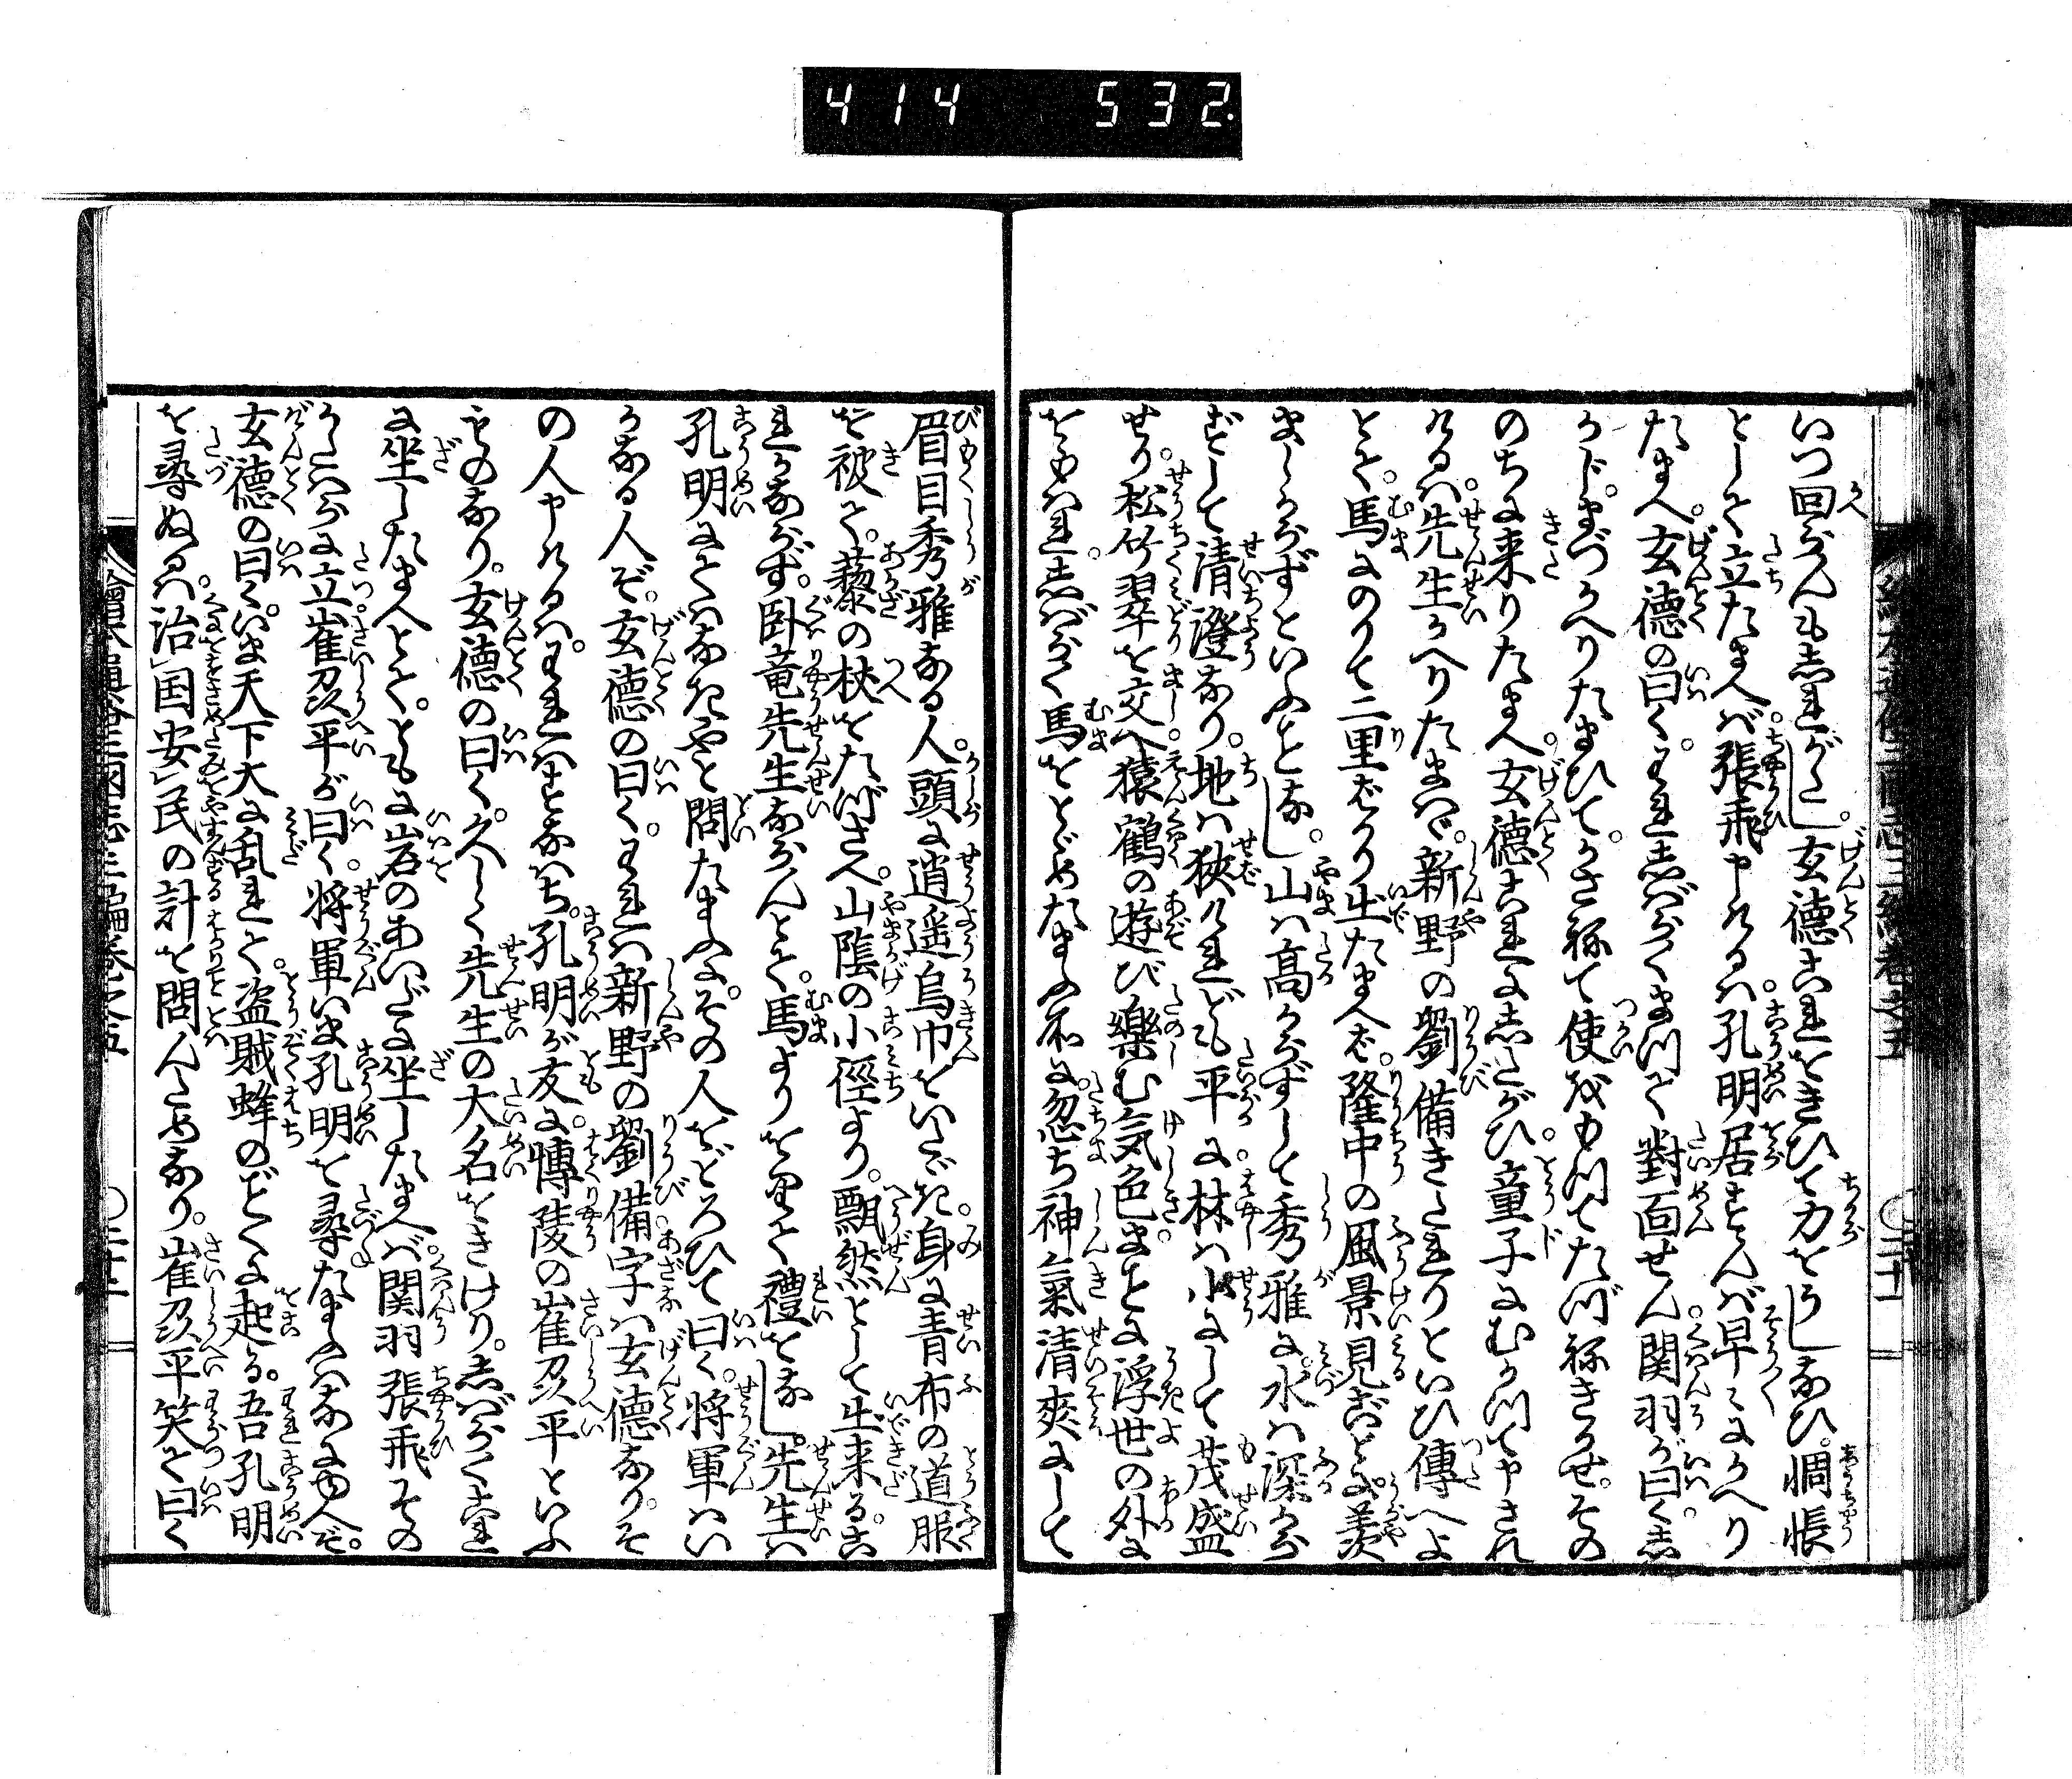 414 532
いつ回らんも志れがたし。玄徳これをきひて力をうしなひ。惆悵
として立たまへば。張飛申けるは。孔明居ずんば早々にかへり
たまへ。玄徳の曰く。われ志ばらくまつて對面せん。関羽が曰く。志
かじ。まづかへりたまひて。かさねて使をもつてたづねきかせ。その
のちに来りたまへ。玄徳これに志たがひ。童子にむかつて申され
けるは。先生かへりたまはゞ。新野の劉備きたれりといひ傳へよ
とて。馬にのりて二里ばかり出たまへば。隆中の風景見ごとに。羨
ましからずといふことなし。山は高からずして秀雅に。水は深から
ずして清澄なり。地は狹けれども平に。林は小にして茂盛
せり。松竹翠を交へ。猿鶴の遊び樂む気色。まことに浮世の外に
をもはれ。志ばらく馬をとゞめたまふ所に。忽ち神氣清爽にして
眉目秀雅なる人。頭に逍遥烏巾をいたゞき。身に青布の道服
を被て。藜の杖をたづさへ。山陰の小徑より。飄然として出来る。こ
れかならず。臥竜先生ならんとて。馬よりをりて禮をなし。先生は
孔明にてはなきやと問たまふに。その人をどろひて曰く。将軍はい
かなる人ぞ。玄徳の曰く。われは新野の劉備字は玄徳なり。そ
の人申けるは。われはすなはち。孔明が友に。博陵の崔州平といふ
ものなり。玄徳の曰く。久しく先生の大名をきけり。志ばらくこれ
に坐したまへとて。ともに岩のあいだに坐したまへば。関羽張飛その
かたはらに立。崔州平が曰く。将軍いま孔明を尋たまふはなにゆへぞ。
玄徳の曰く。いま天下大に乱れて。盗賊蜂のごとくに起る。吾孔明
を尋ぬるは。治国安民の計を問んためなり。崔州平笑て曰く